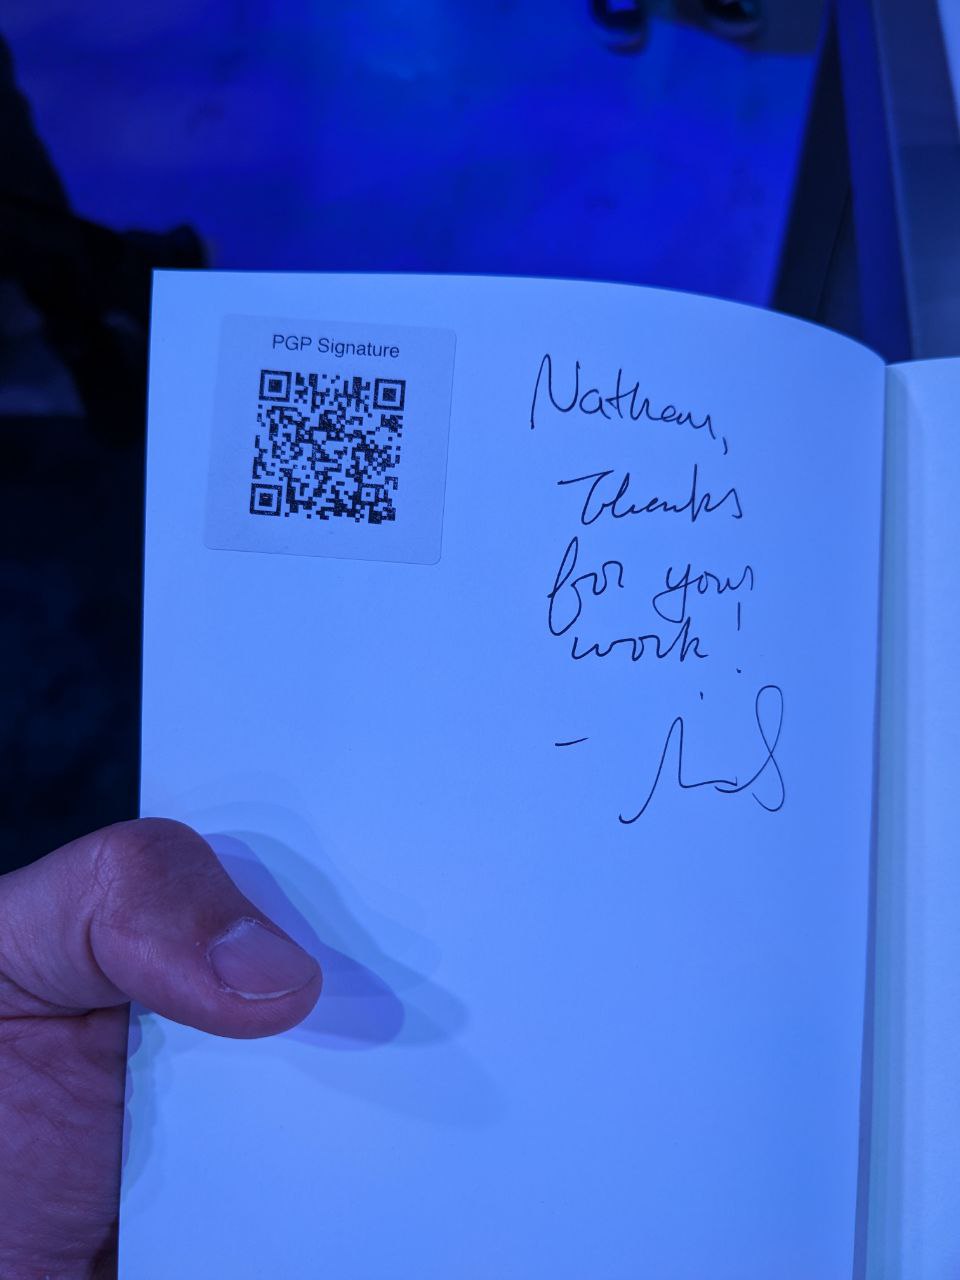 PGP Signature
Nathan,
Thanks
for your
work!